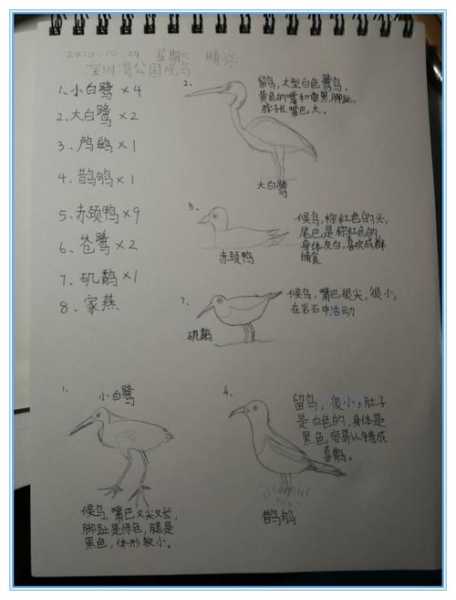 2020.10.24 星期六 晴
深圳湾公园观鸟
1.小白鹭×4
2.大白鹭×2
3、鸬鹚×1
4、鹊鸲×1
5、赤颈鸭×9
6、苍鹭×2
7、矶鹬×1
8、家燕
2.
留鸟,大型白色鹭鸟,
黄色的嘴和
脖子长,嘴巴大。
大白鹭
5.
候鸟,棕红色的头,
尾巴是棕红色的
身体灰白,喜欢成群
捕食
赤颈鸭
7.
候鸟,嘴巴很尖,很小,
在岩石中活动
矶鹬
1.
小白鹭
候鸟,嘴巴又尖又长,
脚趾是绿色,腿是
黑色,体形较小。
4.
留鸟,很小,肚子
是白色的,身体是
黑色,容易认错成
喜鹊。
鹊鸲